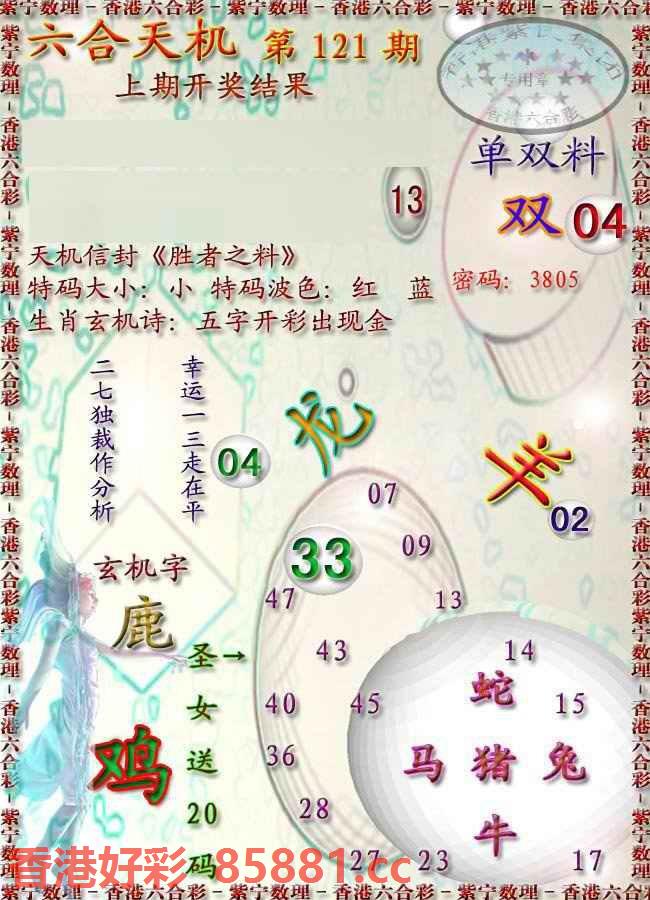 紫宁数理－香港六合彩－紫宁数理－香港六合彩－紫宁数理－香港六合彩－紫宁数理－香港六合彩
六合天机 第 121 期
上期开奖结果
专用章
香港六合彩
单双料
13
双 04
天机信封《胜者之料》
特码大小：小 特码波色：红 蓝
密码：3805
生肖玄机诗：五字开彩出现金
二七独裁作分析
幸运一三走在平
04
龙
羊
02
07
33
09
47
13
玄机字
鹿
圣→
女
送
20
码
鸡
43
14
蛇
40
45
15
36
马 猪 兔
28
牛
27
23
17
香港好彩 85881.cc
紫宁数理－香港六合彩－紫宁数理－香港六合彩－紫宁数理－香港六合彩